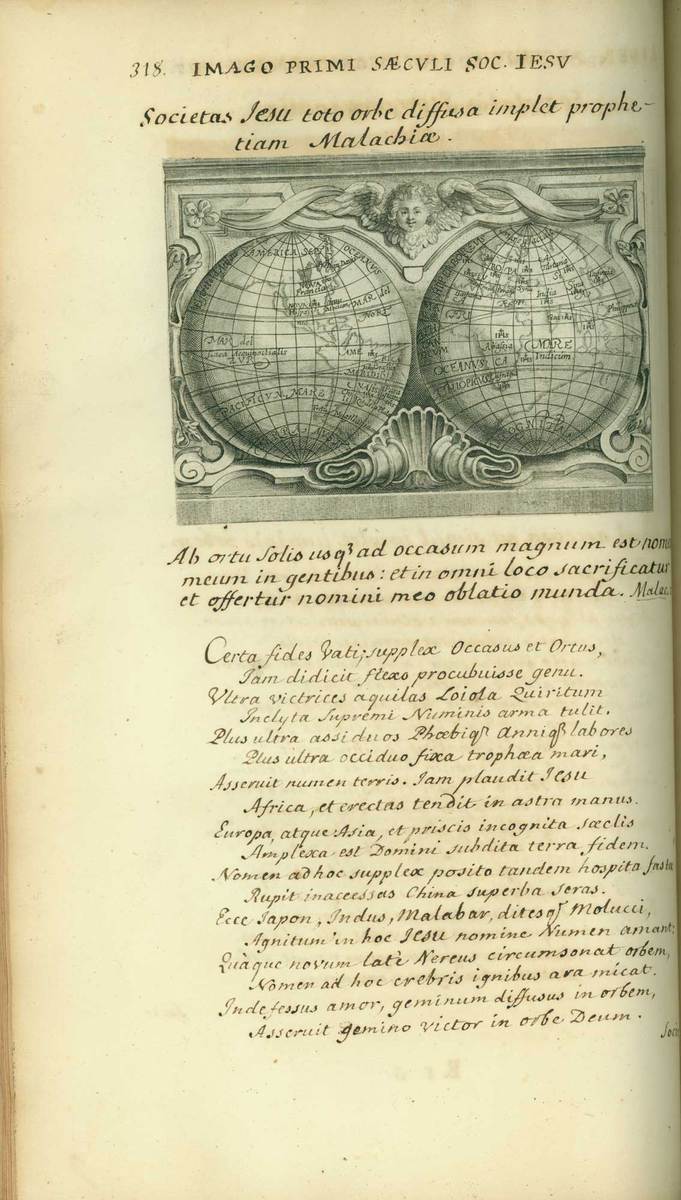 318. IMAGO PRIMI SÆCVLI SOC. IESV
Societas Jesu toto orbe diffusa implet prophe-
tiam Malachiæ.
AMERICA SEPT
OCEANVS
MAR del
NORT
MAR del
PACIFICVM MARE
MARE
Indicum
India
OCEANVS
Philippinæ
Ab ortu Solis usq₃ ad occasum magnum est nom
meum in gentibus: et in omni loco sacrificatur
et offertur nomini meo oblatio munda. Malac.
Certa fides Vati; supplex Occasus et Ortus,
Iam didicit flexo procubuisse genu.
Vltra victrices aquilas Loiola Quiritum
Inclyta Supremi Numinis arma tulit.
Plus ultra assiduos Phœbiq₃ Anniq₃ labores
Plus ultra occiduo fixa trophæa mari,
Asseruit numen terris. Iam plaudit Jesu
Africa, et erectas tendit in astra manus.
Europa, atque Asia, et priscis incognita sæclis
Amplexa est Domini subdita terra fidem.
Nomen ad hoc supplex posito tandem hospita fastu
Rupit inaccessas China superba seras.
Ecce Iapon, Indus, Malabar, ditesq₃ Molucci,
Agnitum in hoc Jesu nomine Numen amant:
Quàque novum latè Nereus circumsonat orbem,
Nomen ad hoc crebris ignibus ara micat.
Indefessus amor, geminum diffusus in orbem,
Asseruit gemino victor in orbe Deum.
Soci